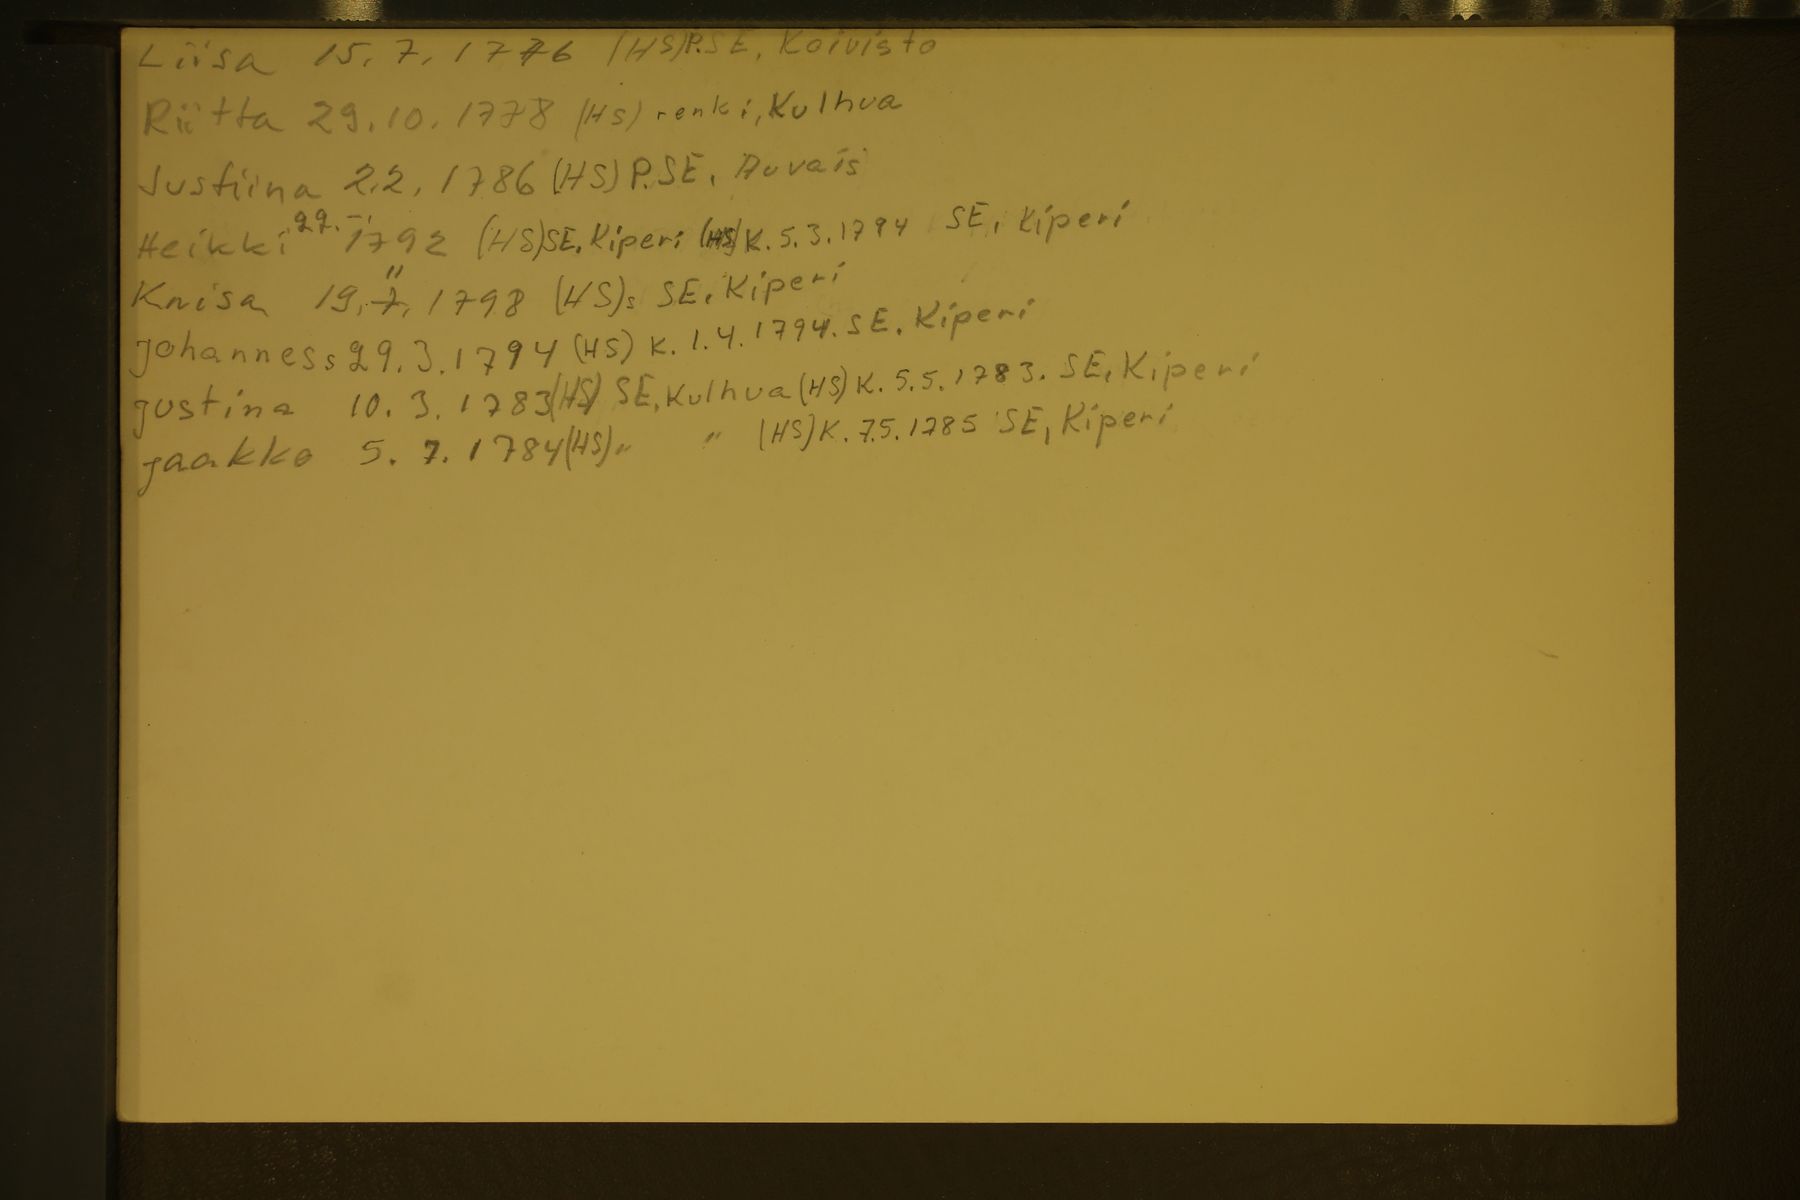 Liisa 15. 7. 1776 (HS) P.SE, Koivisto
Riitta 29.10.1778 (HS) renki, Kulhua
Justiina 2.2. 1786 (HS) P.SE,
Heikki 29. 1792 (HS) SE, Kiperi (HS) K. 5.3.1794 SE, Kiperi
Knisa 19.7. 1798 (HS)s SE, Kiperi
Johanness 29.3.1794 (HS) K. 1.4.1794. SE. Kiperi
Justina 10. 3. 1783 (HS) SE, Kulhua (HS) K. 5.5.1783. SE, Kiperi
Jaakko 5. 7. 1784 (HS) " " (HS) K. 7.5.1785 SE, Kiperi